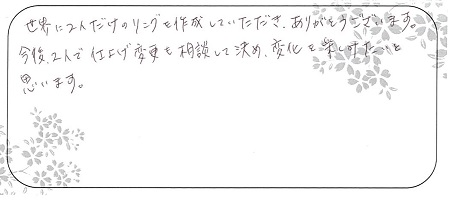 世界に2人だけのリングを作成していただき、ありがとうございます。
今後、2人で仕上げ変更も相談して決め、変化を楽しみたいと
思います。